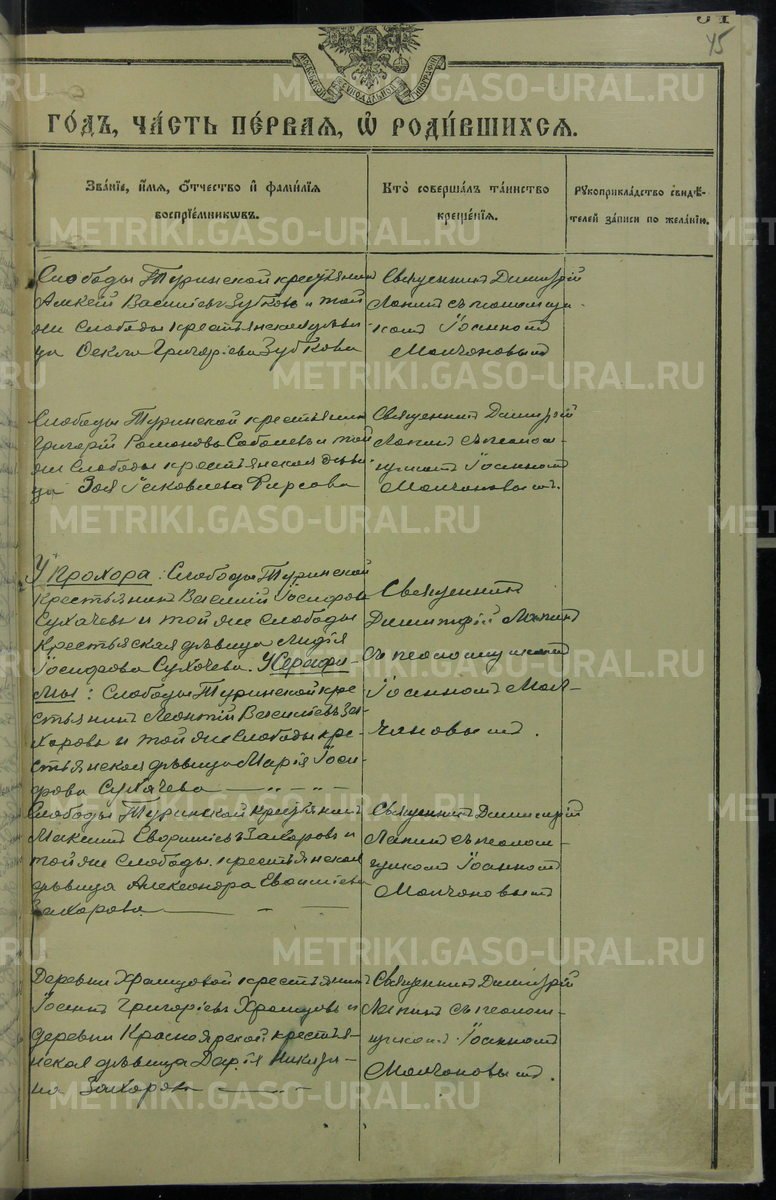 45
МОСКОВСКОЙ СѴНОДАЛЬНОЙ ТИПОГРАФІИ
ГОДЪ, ЧАСТЬ ПЕРВАЯ, Ѡ РОДИВШИХСЯ.
Званіе, имя, отчество и фамилія
воспріемниковъ.
Кто совершалъ таинство
крещенія.
Рукоприкладство свидѣ-
телей записи по желанію.
Слободы Туринской крестьянинъ
Алексѣй Васильевъ Зубковъ и той
же Слободы крестьянская дѣви
ца Ѳекла Григоріева Зубкова
Священникъ Димитрій
Лапинъ съ псаломщи-
комъ Іоанномъ
Молчановымъ
Слободы Туринской крестьянинъ
Григорій Романовъ Соболевъ и той
же Слободы крестьянская дѣви
ца Зоя Іаковлева Фирсова
Священникъ Димитрій
Лапинъ съ псалом-
щикомъ Іоанномъ
Молчановымъ.
У Прохора: Слободы Туринской
крестьянинъ Василій Іосифовъ
Сухачевъ и той же слободы
крестьяская дѣвица Лидія
Іосифова Сухачева. У Серафи-
мы: Слободы Туринской кре-
стьянинъ Леонтій Васильевъ За-
харовъ и той же Слободы кре-
стьянская дѣвица Марія Іоси-
фова Сухачева
Священникъ
Димитрій Лапинъ
съ псаломщикомъ
Іоанномъ Мол-
чановымъ.
Слободы Туринской крестьянинъ
Максимъ Захаровъ и
той же Слободы крестьянская
дѣвица Александра
Захарова
Священникъ Димитрій
Лапинъ съ псалом-
щикомъ Іоанномъ
Молчановымъ
Деревни Храмцовой крестьянинъ
Григоріевъ Храмцовъ и
деревни Красноярской крестья-
нская дѣвица Дарія
на Захарова
Священникъ Димитрій
Лапинъ съ псалом-
щикомъ Іоанномъ
Молчановымъ.
METRIKI.GASO-URAL.RU